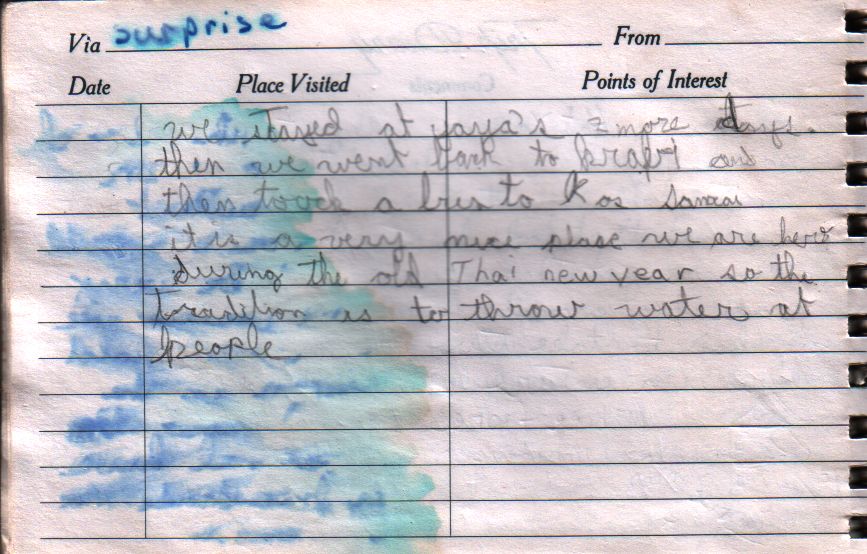 Via surprise From
Date Place Visited Points of Interest
we stayed at yaya's 2 more days.
then we went back to krabi and
then toock a bus to Kos Samui
it is a very nice place we are here
during the old Thai new year so the
tradition is to throw water at
people